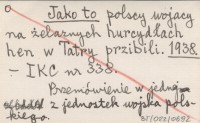 Jako to polscy wojacy
na żelaznych hurcydłach
hen w Tatry przibili. 1938.
– IKC nr 338.
Przemówienie w jednej
z jednostek wojska pols-
kiego.
67/002/0692